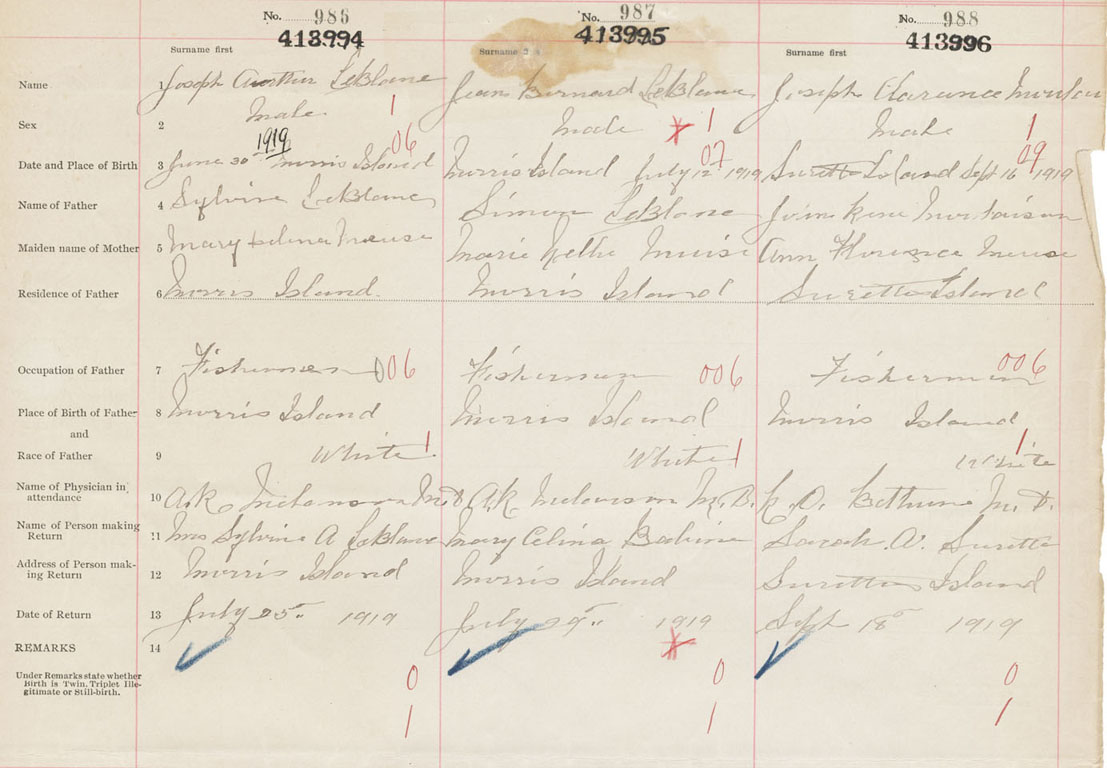 No. 986
413994
No. 987
413995
No. 988
413996
Surname first
Surname first
Name 1 Joseph Arthur LeBlanc
Jean Bernard LeBlanc
Joseph Clarence
Sex 2 Male 1
Male 1
Male 1
Date and Place of Birth 3 June 30 1919 Morris Island 06
Morris Island July 12 1919 07
Surette Island Sept 16 1919 09
Name of Father 4 Sylvine LeBlanc
Simon LeBlanc
John Rene
Maiden name of Mother 5 Mary Selina Meuse
Marie Nellie Muise
Ann Florence Meuse
Residence of Father 6 Morris Island.
Morris Island
Surette Island
Occupation of Father 7 Fisherman 006
Fisherman 006
Fisherman 006
Place of Birth of Father 8 Morris Island
Morris Island
Morris Island
and
Race of Father 9 White 1
White 1
White 1
Name of Physician in attendance 10 A.R. Melanson M.D.
A.R. Melanson M.D.
D. Bethune M.D.
Name of Person making Return 11 Mrs Sylvine A LeBlanc
Mary Celina Babine
Sarah A. Surette
Address of Person making Return 12 Morris Island
Morris Island
Surette Island
Date of Return 13 July 25 1919
July 29 1919
Sept 18 1919
REMARKS 14
Under Remarks state whether
Birth is Twin, Triplet Ille-
gitimate or Still-birth.
0
0
0
1
1
1